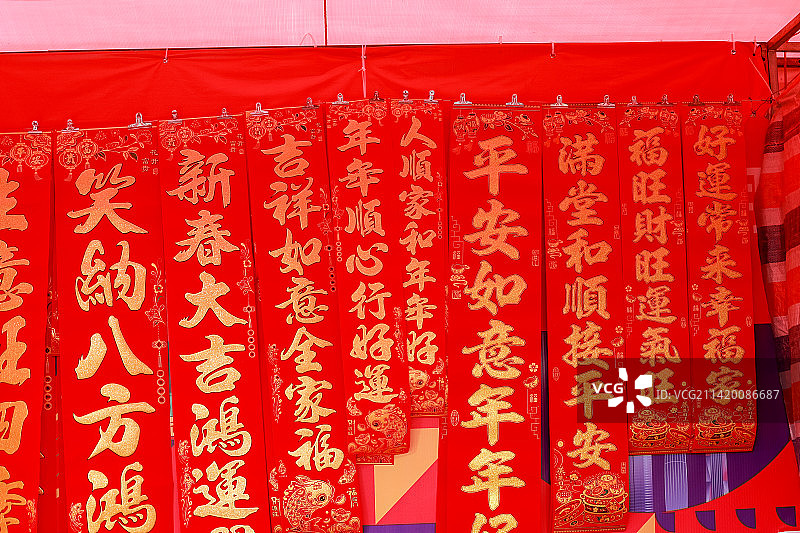 生意旺四季
笑纳八方鴻
新春大吉鴻運
吉祥如意全家福
年年順心行好運
人順家和年年好
平安如意年年好
滿堂和順接平安
福旺財旺運氣旺
好運常来幸福家
VCG®
VCG211420086687